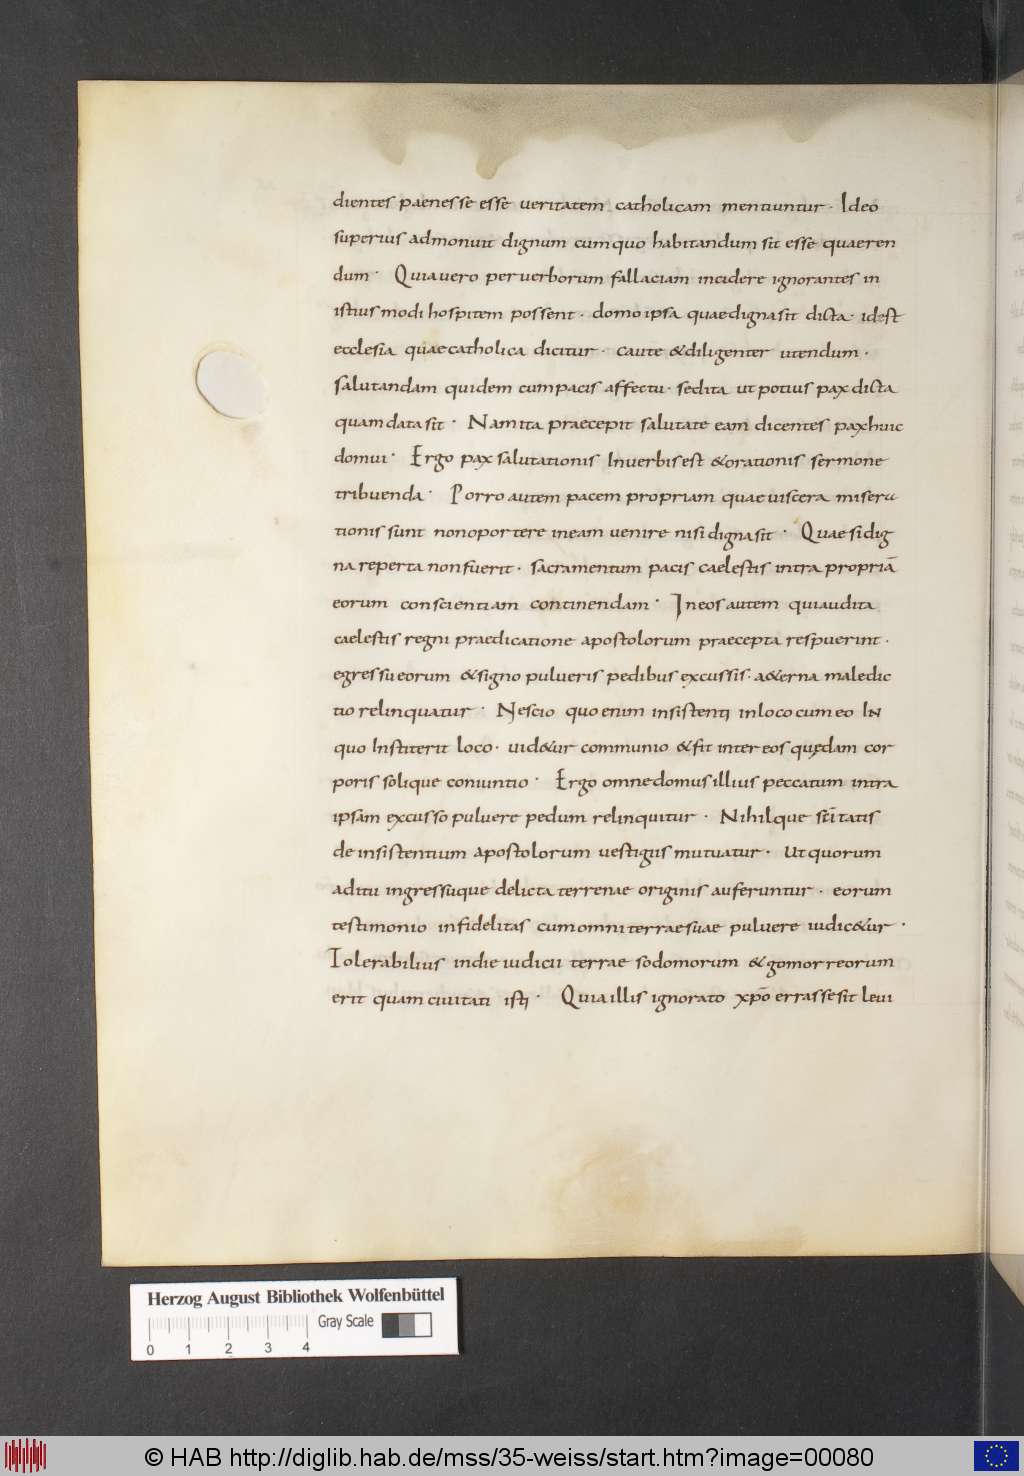 dientes paenes se esse veritatem catholicam mentiuntur · Ideo
superius admonuit dignum cum quo habitandum sit esse quaeren
dum · Quia vero per verborum fallaciam incidere ignorantes in
istius modi hospitem possent · domo ipsa quae digna sit dicta · id est
ecclesia quae catholica dicitur · caute & diligenter utendum ·
salutandam quidem cum pacis affectu · sed ita ut potius pax dicta
quam data sit · Nam ita praecepit salutate eam dicentes pax huic
domui · Ergo pax salutationis In verbis est & orationis sermone
tribuenda · Porro autem pacem propriam quae viscera misera
tionis sunt non oportere in eam venire nisi digna sit · Quae si dig
na reperta non fuerit · sacramentum pacis caelestis intra propriā
eorum conscientiam continendam · In eos autem qui audita
caelestis regni praedicatione apostolorum praecepta respuerint ·
egressu eorum & signo pulveris pedibus excussis · a&erna maledic
tio relinquatur · Nescio quo enim insistenti in loco cum eo IN
quo Institerit loco · vid&ur communio & fit inter eos quędam cor
poris solique coniuntio · Ergo omne domus illius peccatum intra
ipsam excusso pulvere pedum relinquitur · Nihilque sc̄itatis
de insistentium apostolorum vestigiis mutuatur · Ut quorum
aditu ingressuque delicta terrenae originis auferuntur · eorum
testimonio infidelitas cum omni terrae suae pulvere iudic&ur ·
Tolerabilius in die iudicii terrae sodomorum & gomorreorum
erit quam civitati isti · Quia illis ignorato xp̄o errasse sit levi
Herzog August Bibliothek Wolfenbüttel
Gray Scale
0 1 2 3 4
© HAB http://diglib.hab.de/mss/35-weiss/start.htm?image=00080